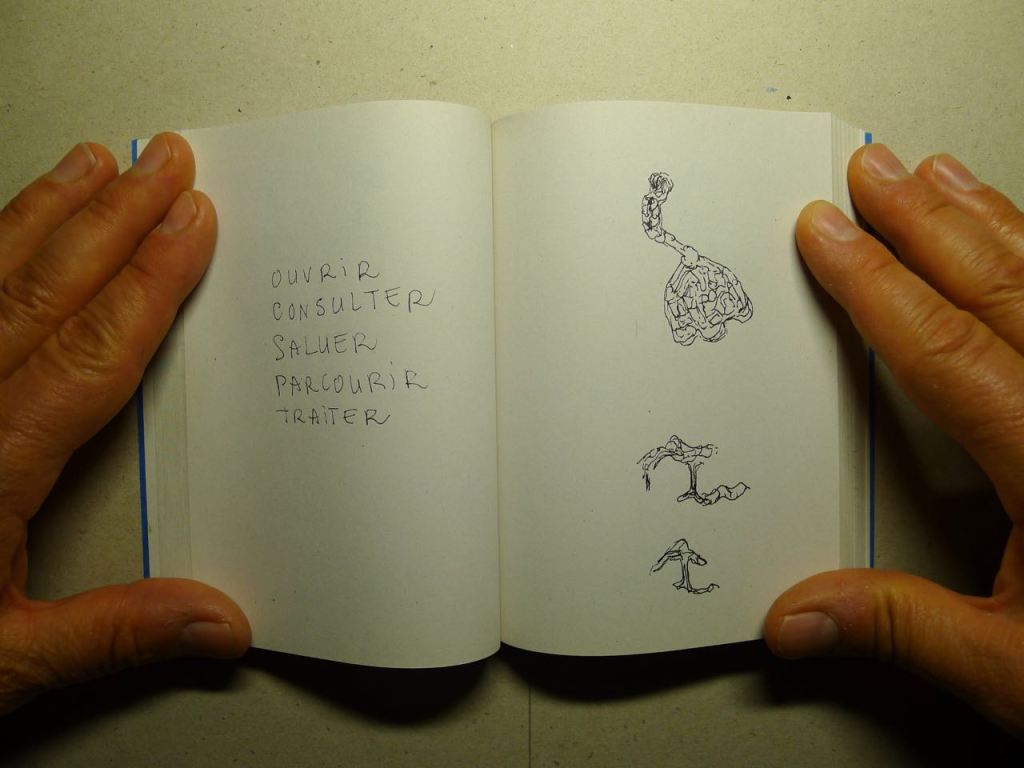 OUVRIR
CONSULTER
SALUER
PARCOURIR
TRAITER